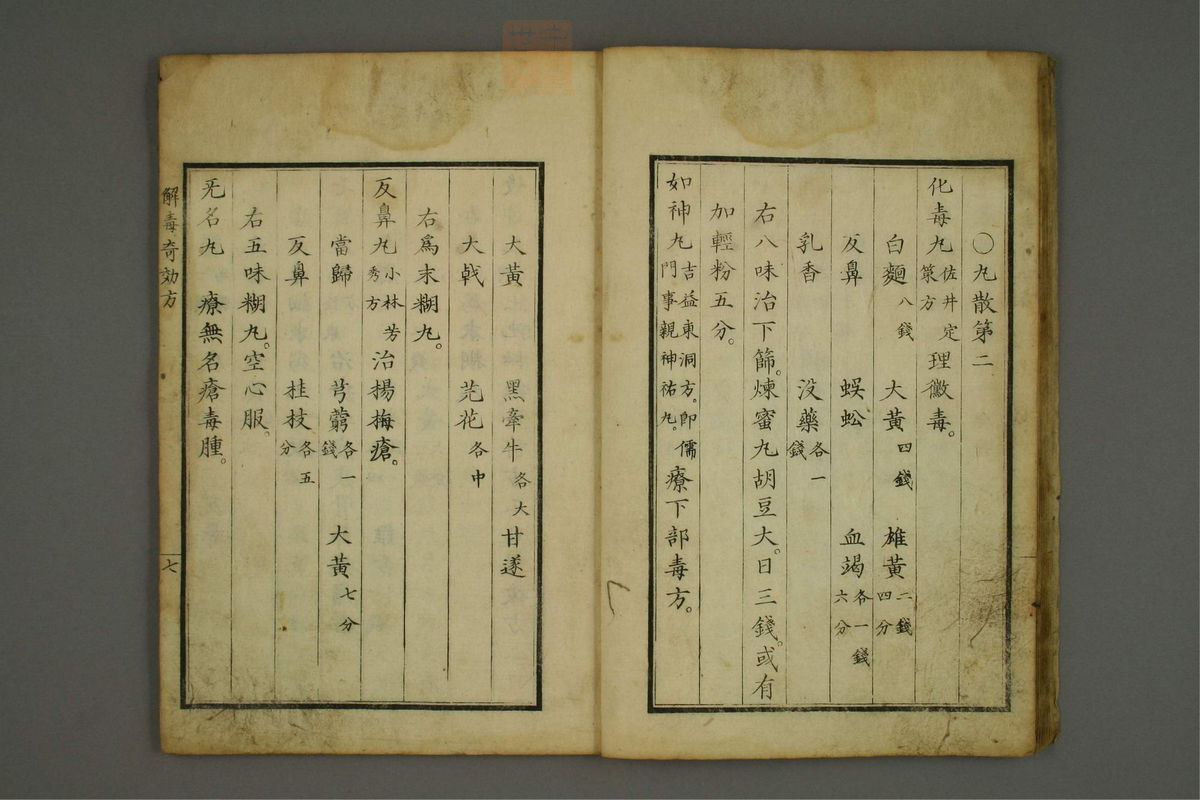 〇丸散第二
化毒丸佐井定策方理黴毒。
白麵八錢 大黃四錢 雄黃二錢四分
反鼻 蜈蚣 血竭各一錢六分
乳香 没藥各一錢
右八味治下篩。煉蜜丸胡豆大。日三錢。或有
加輕粉五分。
如神丸吉益東洞方。即儒門事親神祐丸。療下部毒方。
大黃 黑牽牛各大 甘遂
大戟 芫花各中
右爲末糊丸。
反鼻丸小林芳秀方治楊梅瘡。
當歸 芎藭各一錢 大黃七分
反鼻 桂枝各五分
右五味糊丸。空心服。
无名丸 療無名瘡毒腫。
解毒奇効方
七